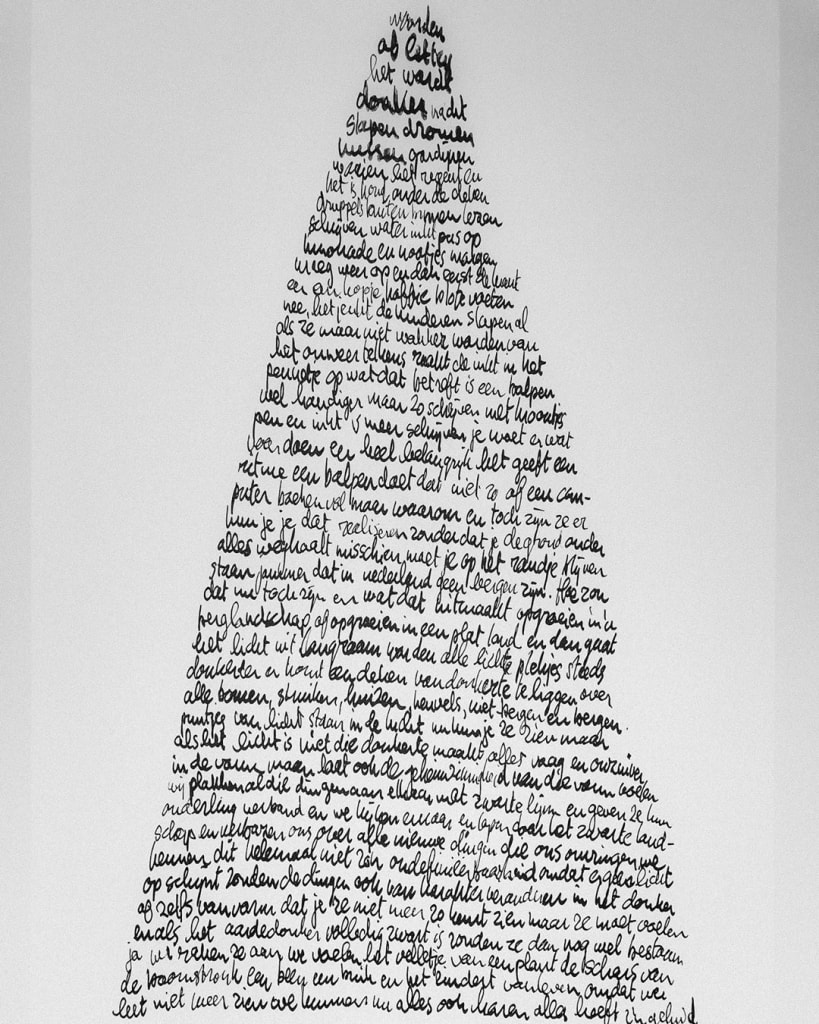 woorden
of letters
het wordt
donker nacht
slapen dromen
kussen gordijnen
waaien het regent en
het is koud onder de deken
druppels buiten binnen lezen
schrijven water inkt pas op
limonade en nootjes morgen
vroeg weer op en dan eerst de krant
en een kopje koffie blote voeten
nee, het jeukt de kinderen slapen al
als ze maar niet wakker worden van
het onweer telkens raakt de inkt in het
pennetje op wat dat betreft is een balpen
veel handiger maar zo schrijven met kroontjes
pen en inkt is meer schrijven je moet er wat
voor doen een heel belangrijk het geeft een
ritme een balpen doet dat niet zo of een com-
puter boeken vol maar waarom en toch zijn ze er
kun je je dat realiseren zonder dat je de grond onder
alles weghaalt misschien moet je op het randje blijven
staan jammer dat in nederland geen bergen zijn. Hoe zou
dat nu toch zijn en wat dat uitmaakt opgroeien in 'n
berglandschap of opgroeien in een plat land en dan gaat
het licht uit langzaam worden alle lichte plekjes steeds
donkerder er komt een deken van donkerte te liggen over
alle bomen, struiken, huizen, heuvels, niet-bergen en bergen.
puntjes van licht staan in de lucht nu kun je ze zien maar
als het licht is niet die donkerte maakt alles vaag en onzuiver
in de vorm maar laat ook de geheimzinnigheid van die vorm voelen
wij plakken al die dingen aan elkaar met zwarte lijm en geven ze hun
onderling verband en we kijken ernaar en lopen door het zwarte land-
schap en verbazen ons over alle nieuwe dingen die ons omringen we
kennen dit helemaal niet zo'n ondefinieerbaarheid omdat er geen licht
op schijnt zouden de dingen ook van karakter veranderen in het donker
of zelfs van vorm dat je ze niet meer zo kunt zien maar ze moet voelen
en als het aardedonker volledig zwart is zouden ze dan nog wel bestaan
ja wij raken ze aan we voelen het velletje van een plant de schors van
de boomstronk een been een buik en het zindert van leven omdat we
het niet meer zien we kunnen nu alles ook horen alles heeft z'n geluid